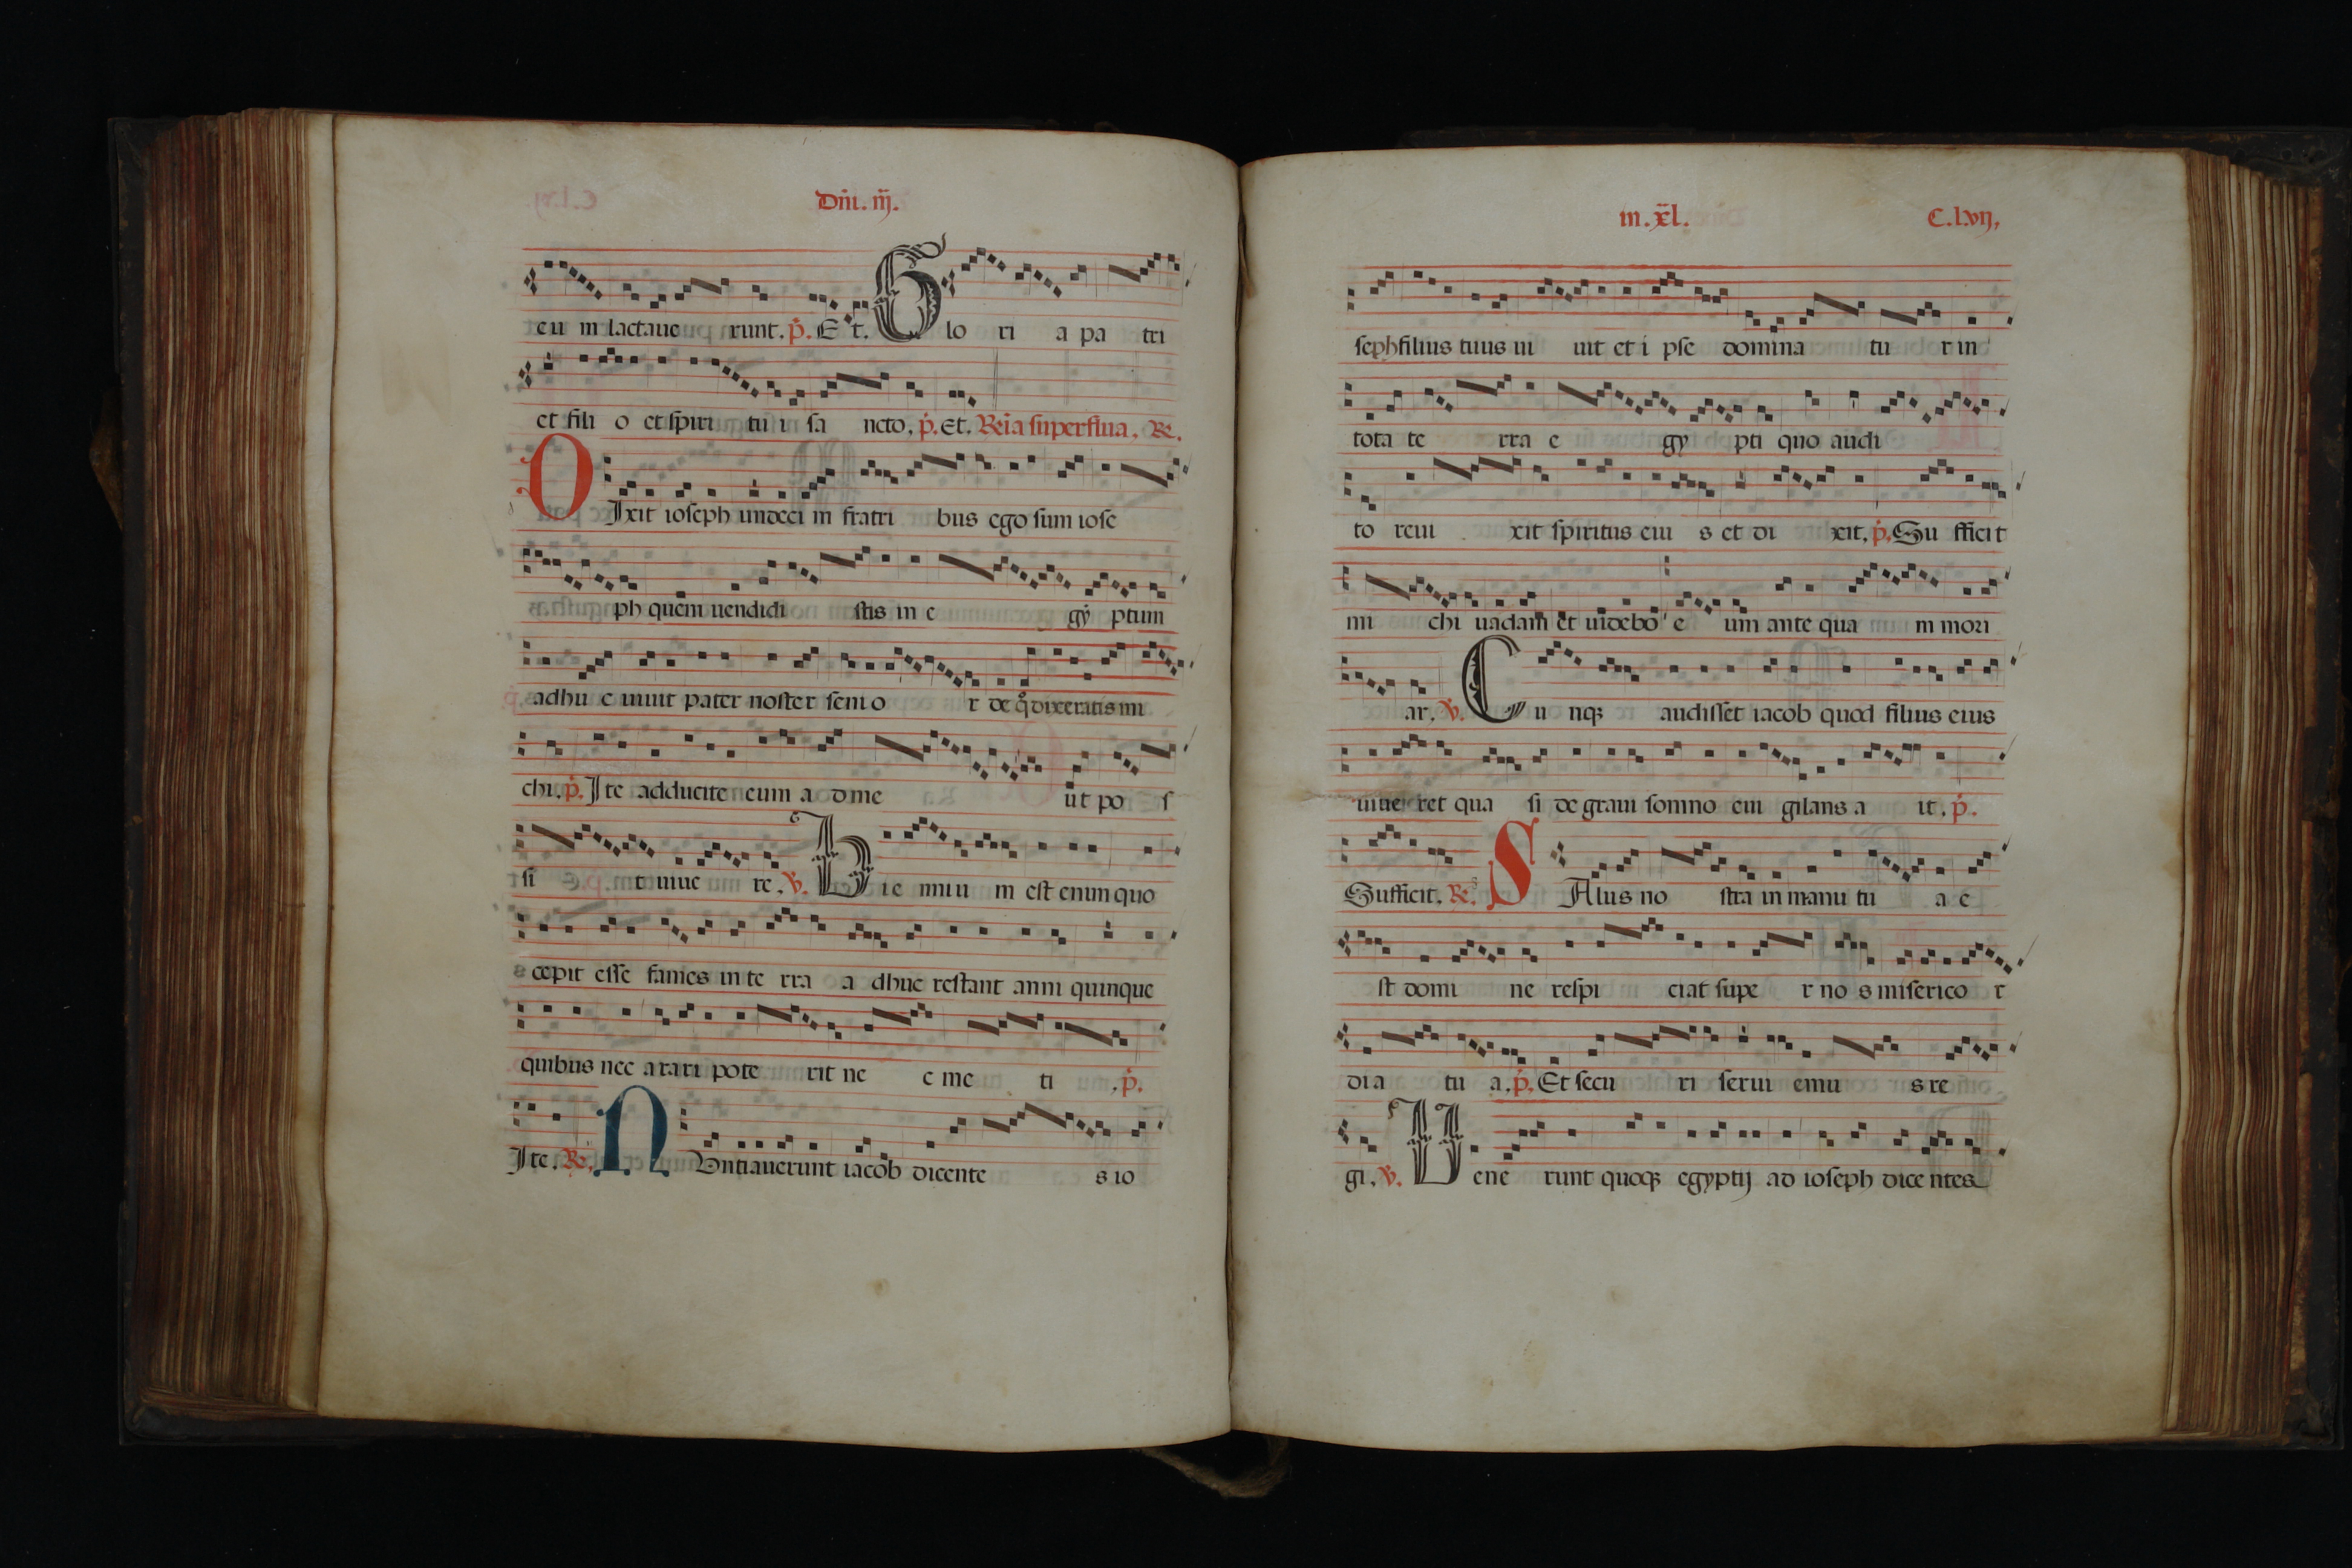 Dm̄. iij̄.
eu m lactaue runt. p̄. E t. G lo ri a pa tri
et fili o et spiri tu i sa ncto. p̄. Et. Rel̄a superflua. R.
D Ixit ioseph undeci m fratri bus ego sum iose
ph quem uendidi stis in e gy ptum
adhu c uiuit pater noster senio r de q̊ dixeratis mi
chi. p̄. Ite adducite eum a d me ut po s
si t uiue re. V. B ie nniu m est enim quo
cepit esse fames in te rra a dhuc restant anni quinque
quibus nec arari pote rit ne c me ti . p̄.
Ite. R. N Untiauerunt iacob dicente s io
in. x̄l. C.lvij,
seph filius tuus ui uit et i pse domina tu r in
tota te rra e gy pti quo audi
to reui xit spiritus eiu s et di xit. p̄. Su fficit
mi chi uadam et uidebo e um ante qua m mori
ar. V. C u nqꝫ audisset iacob quod filius eius
uiue ret qua si de graui somno eui gilans a it. p̄.
Sufficit. R. S Alus no stra in manu tu a e
st domi ne respi ciat supe r no s miserico r
dia tu a. p̄. Et secu ri serui emu s re
gi. V. U ene runt quoqꝫ egyptij ad ioseph dice ntes